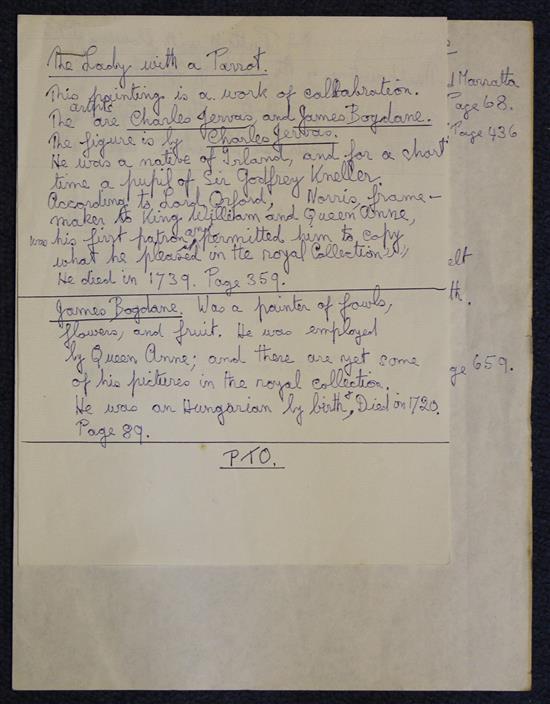 The Lady with a Parrot.
This painting is a work of collabration.
The artists are Charles Jervas, and James Bogdane.
The figure is by Charles Jervas.
He was a native of Irland, and for a short
time a pupil of Sir Godfrey Kneller.
According to Lord Orford, Norris, frame-
maker to King William and Queen Anne,
was his first patron, and permitted him to copy
what he pleased in the royal Collection.
He died in 1739. Page 359.
James Bogdane. Was a painter of fowls,
flowers, and fruit. He was employed
by Queen Anne; and there are yet some
of his pictures in the royal collection.
He was an Hungarian by birth, & Died in 1720.
Page 89.
P.T.O.
Marratta
Page 68.
Page 436
elt
th.
ge 659.